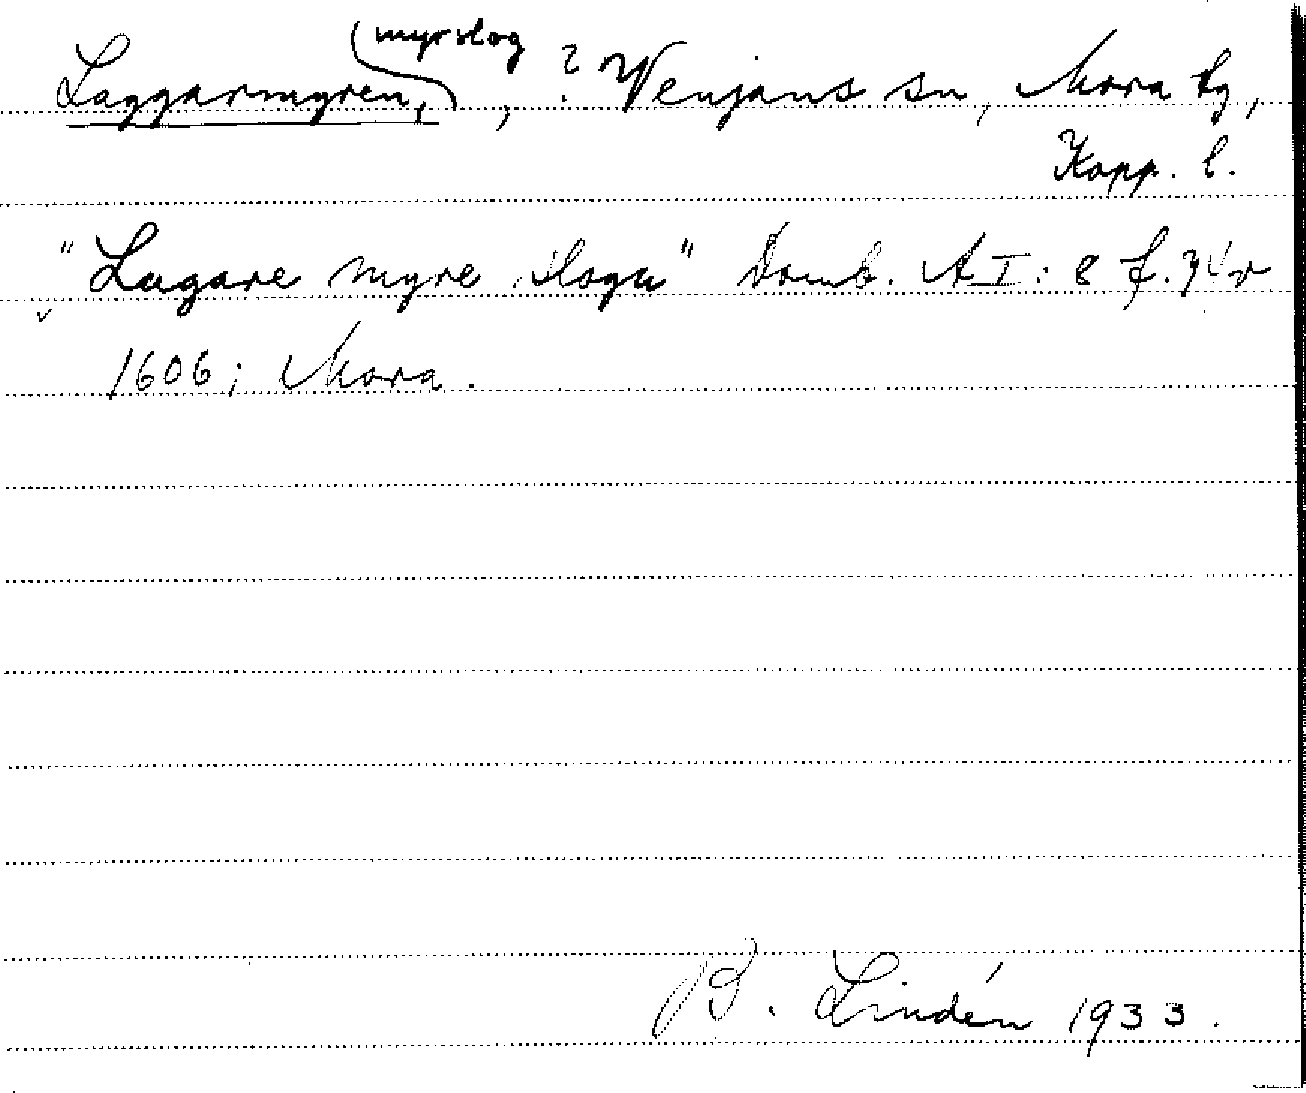 Laggarmyren, myrslog, ? Venjans sn, Mora tg,
Kopp. l.
"Lagare myre sloga" Domb. A I: 8 f.
1606; Mora.
B. Lindén 1933.